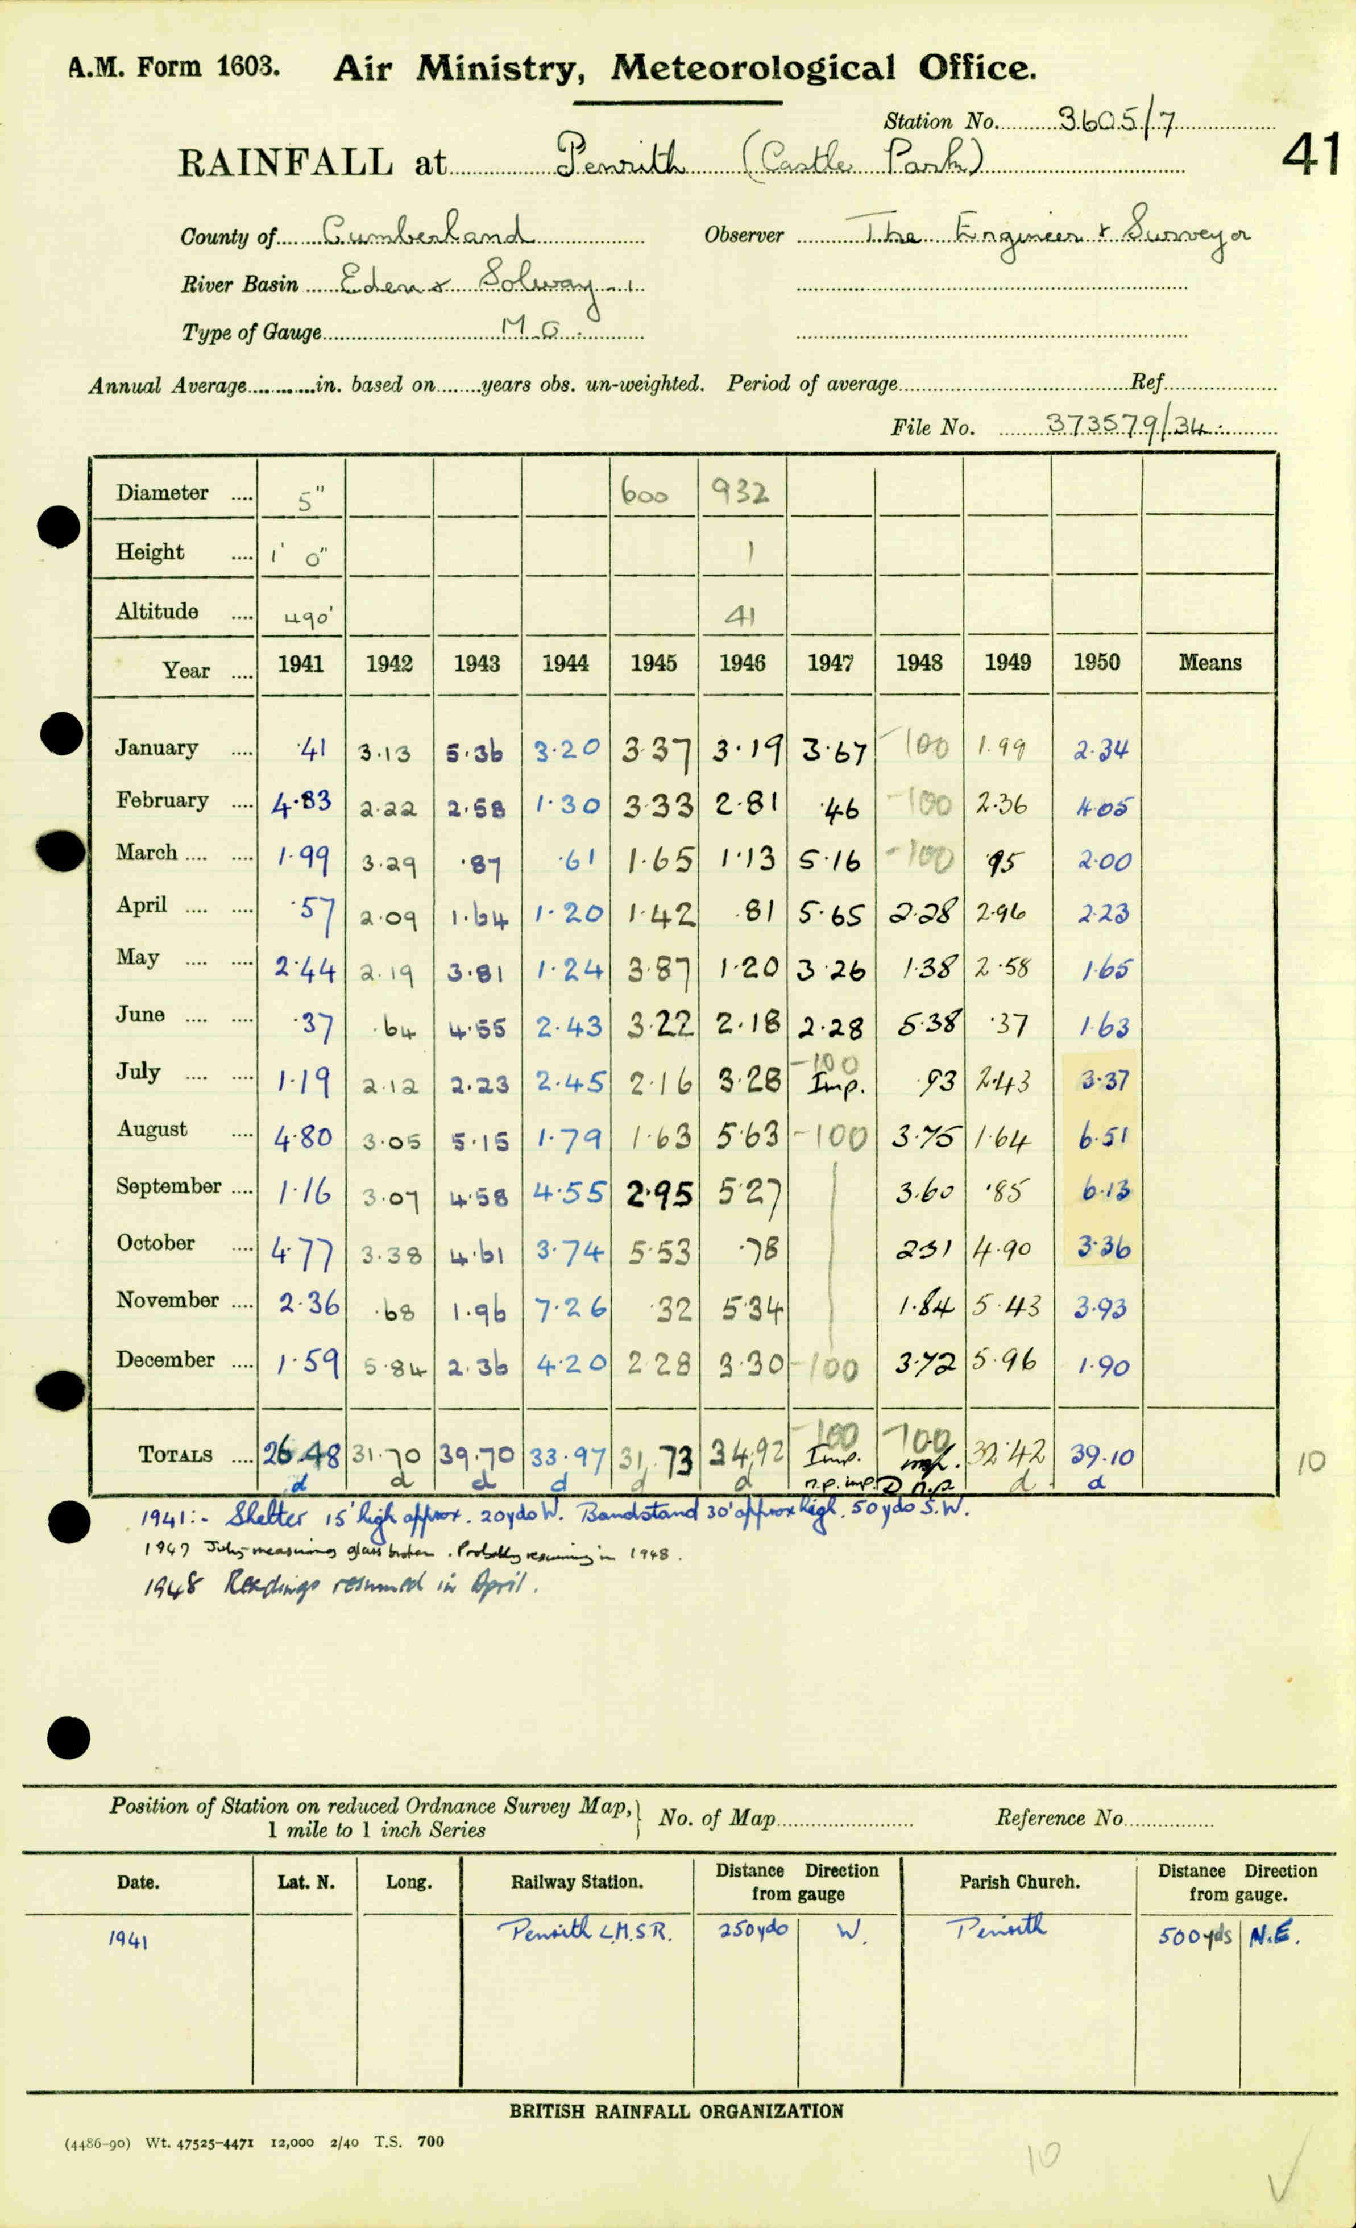 A.M. Form 1603. Air Ministry, Meteorological Office.
Station No. 3605/7
41
RAINFALL at Penrith (Castle Park)
County of Cumberland Observer The Engineer & Surveyor
River Basin Eden & Solway - 1
Type of Gauge M.O.
Annual Average in. based on years obs. un-weighted. Period of average Ref.
File No. 373579/34.
Diameter .... 5" 600 932
Height .... 1' 0" 1
Altitude .... 490' 41
Year .... 1941 1942 1943 1944 1945 1946 1947 1948 1949 1950 Means
January .... ·41 3·13 5·36 3·20 3·37 3·19 3·67 -100 1·99 2·34
February .... 4·83 2·22 2·58 1·30 3·33 2·81 ·46 -100 2·36 4·05
March .... .... 1·99 3·29 ·87 ·61 1·65 1·13 5·16 -100 ·95 2·00
April .... .... ·57 2·09 1·64 1·20 1·42 ·81 5·65 2·28 2·96 2·23
May .... .... 2·44 2·19 3·81 1·24 3·87 1·20 3·26 1·38 2·58 1·65
June .... .... ·37 ·64 4·55 2·43 3·22 2·18 2·28 5·38 ·37 1·63
July .... .... 1·19 2·12 2·23 2·45 2·16 3·28 -100 Imp. ·93 2·43 3·37
August .... 4·80 3·05 5·15 1·79 1·63 5·63 -100 3·75 1·64 6·51
September .... 1·16 3·07 4·58 4·55 2·95 5·27 3·60 ·85 6·13
October .... 4·77 3·38 4·61 3·74 5·53 ·78 2·31 4·90 3·36
November .... 2·36 ·68 1·96 7·26 ·32 5·34 1·84 5·43 3·93
December .... 1·59 5·84 2·36 4·20 2·28 3·30 -100 3·72 5·96 1·90
TOTALS .... 26·48 31·70 39·70 33·97 31·73 34·92 -100 Imp. -100 imp. 32·42 39·10 10
d d d d d d n.p. imp. D n.p. d d
1941:- Shelter 15' high approx. 20yds W. Bandstand 30' approx high. 50yds S.W.
1947 July-measuring glass broken. Probably resuming in 1948.
1948 Readings resumed in April.
Position of Station on reduced Ordnance Survey Map,} No. of Map Reference No.
1 mile to 1 inch Series
Date. Lat. N. Long. Railway Station. Distance Direction from gauge Parish Church. Distance Direction from gauge.
1941 Penrith L.M.S.R. 250yds W. Penrith 500yds N.E.
BRITISH RAINFALL ORGANIZATION
(4486-90) Wt. 47525-4471 12,000 2/40 T.S. 700
10